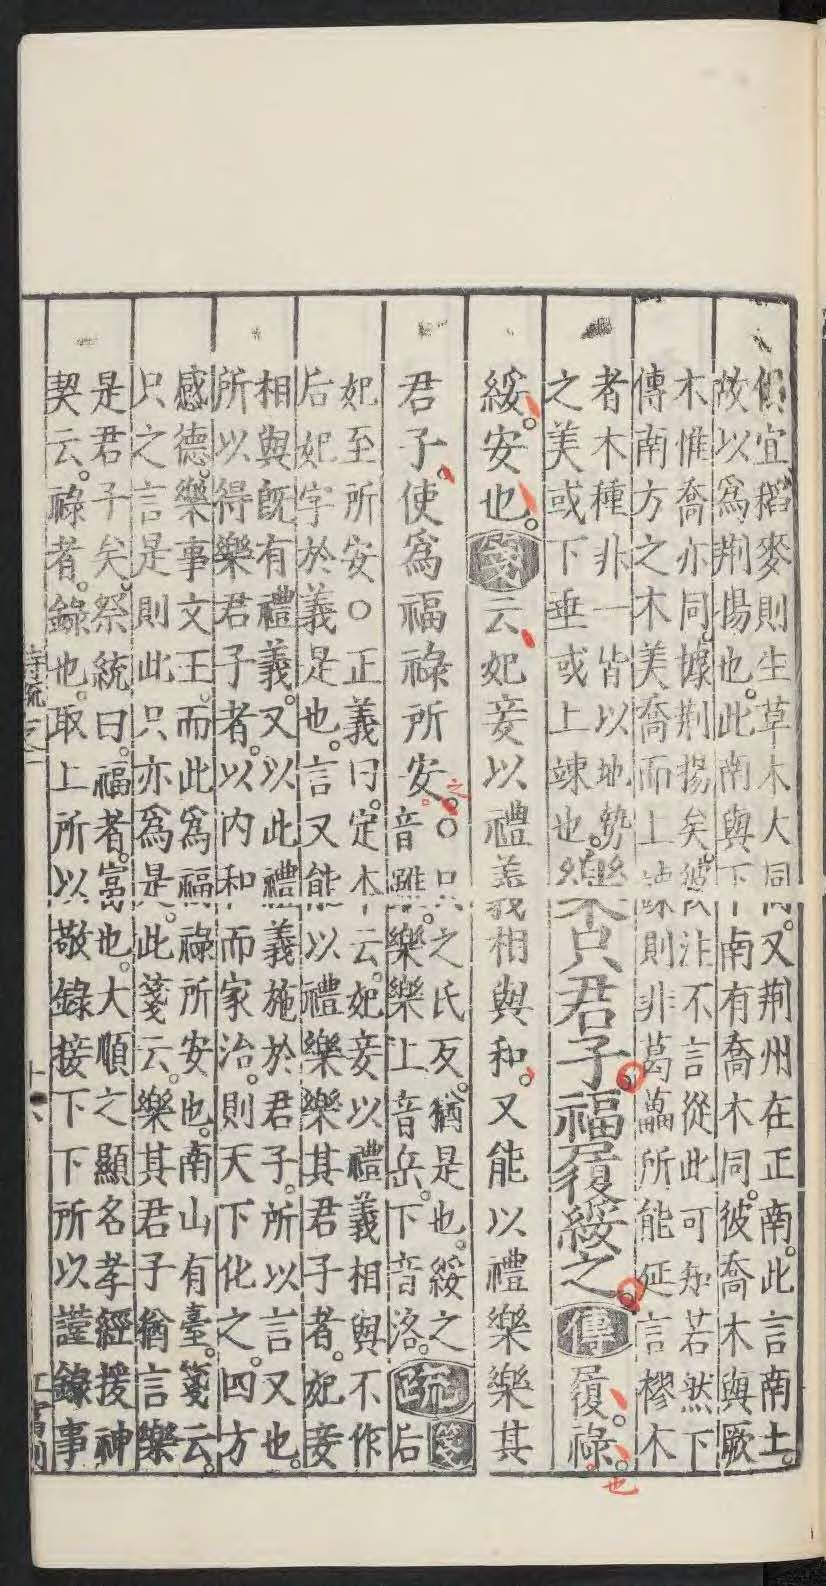 偃宜稻麥則生草木大同又荆州在正南此言南土
故以爲荆揚也此南與下南有喬木同彼喬木與厥
木惟喬亦同據荆揚矣彼注不言從此可知若然下
傳南方之木美喬而上竦則非葛藟所能延言樛木
者木種非一皆以地勢
之美或下垂或上竦也
樂只君子福履綏之傳履祿
綏安也箋云妃妾以禮義相與和又能以禮樂樂其
君子使爲福祿所安
之
○只之氏反猶是也綏之
音雖樂樂上音岳下音洛疏箋后
妃至所安○正義曰定本云妃妾以禮義相與不作
后妃字於義是也言又能以禮樂樂其君子者妃妾
相與旣有禮義又以此禮義施於君子所以言又也
所以得樂君子者以内和而家治則天下化之四方
感德樂事文王而此爲福祿所安也南山有臺箋云
只之言是則此只亦爲是此箋云樂其君子猶言樂
是君子矣祭統曰福者富也大順之顯名孝經援神
契云祿者錄也取上所以敬錄接下下所以謹錄事
也